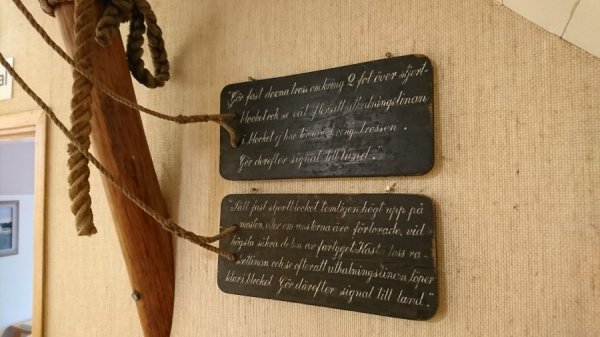 "Gör fast denna tross omkring 2 fot över stjert-
blocket och se väl efter att uthalningslinan
i blocket ej har törn omkring trossen.
Gör därefter signal till land."
"Sätt fast stjertblocket temligen högt upp på
masten, eller om masterna äro förlorade, vid
högsta säkra delen av fartyget. Kasta loss ra-
kettlinan och se efter att uthalningslinan löper
klar i blocket. Gör därefter signal till land."